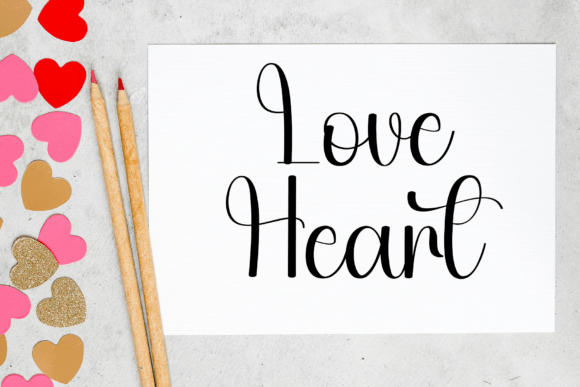 Love
Heart